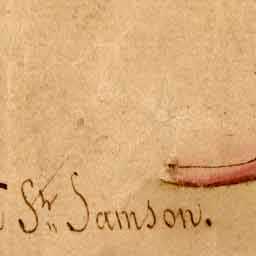 Sr. Samson.